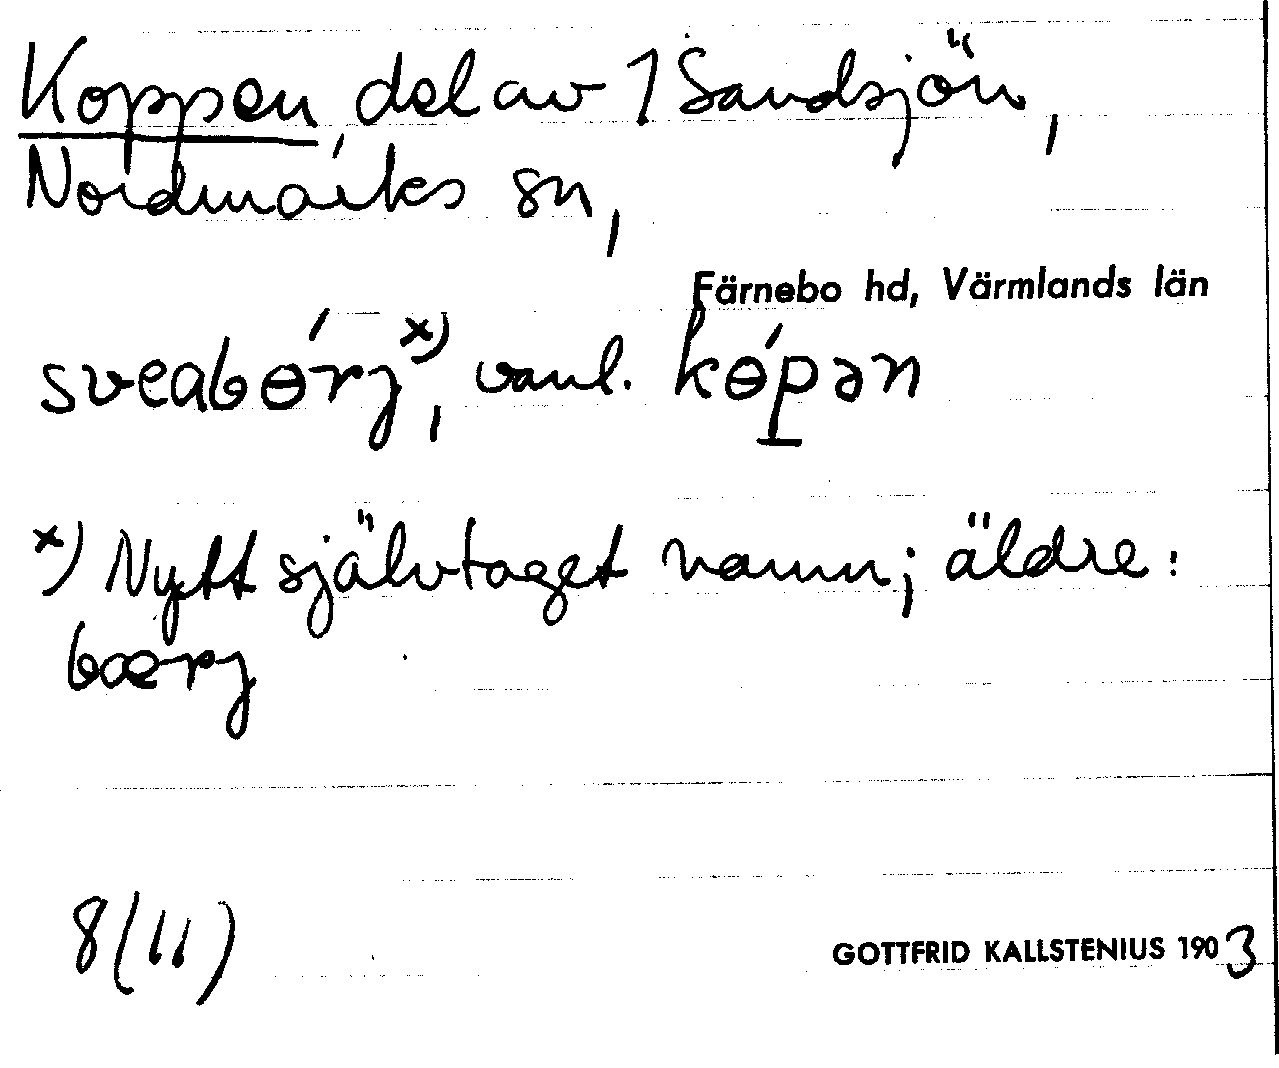 Koppen, del av 1 Sandsjön,
Nordmarks sn,
Färnebo hd, Värmlands län
sveabɵ́rj x), vanl. kɵ́pən
x) Nytt självtaget namn; äldre:
bærj
8(11)
GOTTFRID KALLSTENIUS 1903